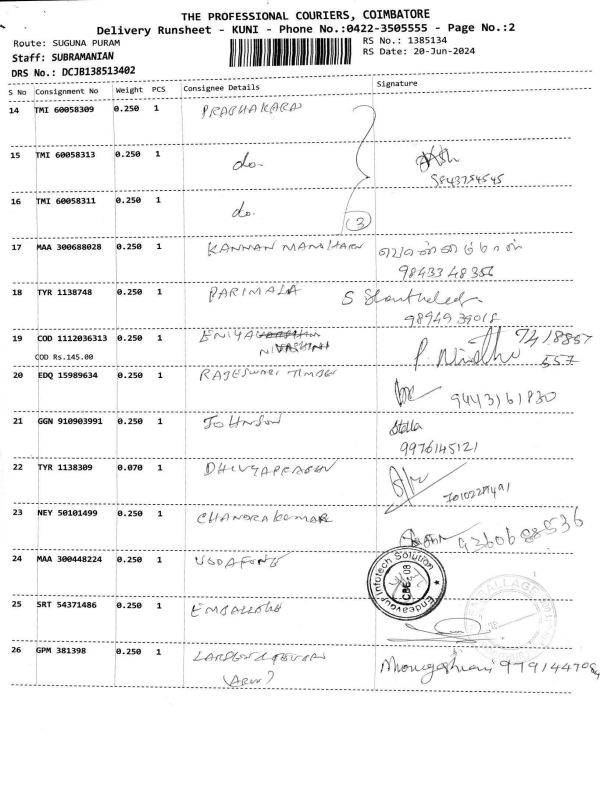 THE PROFESSIONAL COURIERS, COIMBATORE
Delivery Runsheet - KUNI - Phone No.:0422-3505555 - Page No.:2
Route: SUGUNA PURAM
RS No.: 1385134
Staff: SUBRAMANIAN
RS Date: 20-Jun-2024
DRS No.: DCJB138513402
S No Consignment No Weight PCS Consignee Details Signature
14 TMI 60058309 0.250 1 PRABHAKARA
15 TMI 60058313 0.250 1 do.
9843754545
16 TMI 60058311 0.250 1 do.
3
17 MAA 300688028 0.250 1 KANNAN
98433 48 356
18 TYR 1138748 0.250 1 PARIMALA S
98949 39018
19 COD 1112036313 0.250 1 ENIYA
NIVASHINI
COD Rs.145.00
P. Nindhu 7418857
557
20 EDQ 15989634 0.250 1 RAJESWARI
9443161830
21 GGN 910903991 0.250 1 JOHNSON Stella
9976145121
22 TYR 1138309 0.070 1
23 NEY 50101499 0.250 1 CHANDRAKUMAR 9360688536
24 MAA 300448224 0.250 1 VODAFONE
Endeavour Infotech Solution
CBE-08
25 SRT 54371486 0.250 1
26 GPM 381398 0.250 1